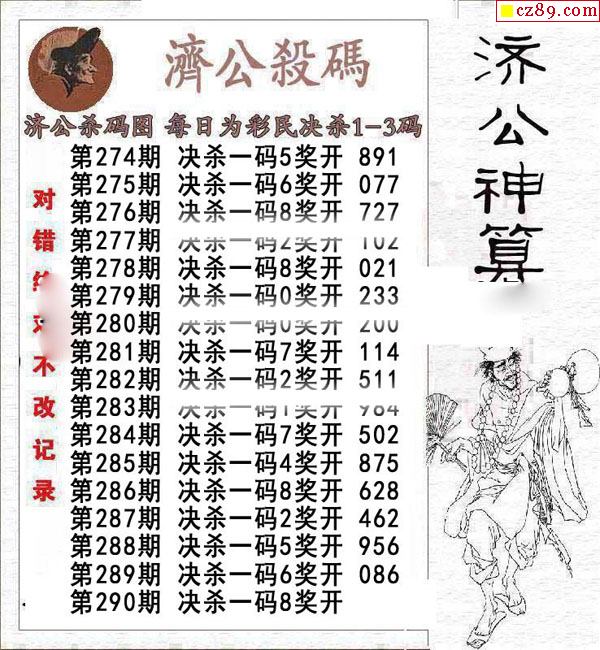 cz89.com
濟公殺碼
济公杀码图 每日为彩民决杀1-3码
第274期 决杀一码5奖开 891
第275期 决杀一码6奖开 077
第276期 决杀一码8奖开 727
第277期 决杀一码2奖开 102
第278期 决杀一码8奖开 021
第279期 决杀一码0奖开 233
第280期 决杀一码0奖开 200
第281期 决杀一码7奖开 114
第282期 决杀一码2奖开 511
第283期 决杀一码1奖开 984
第284期 决杀一码7奖开 502
第285期 决杀一码4奖开 875
第286期 决杀一码8奖开 628
第287期 决杀一码2奖开 462
第288期 决杀一码5奖开 956
第289期 决杀一码6奖开 086
第290期 决杀一码8奖开
对错 不改记录
济公神算